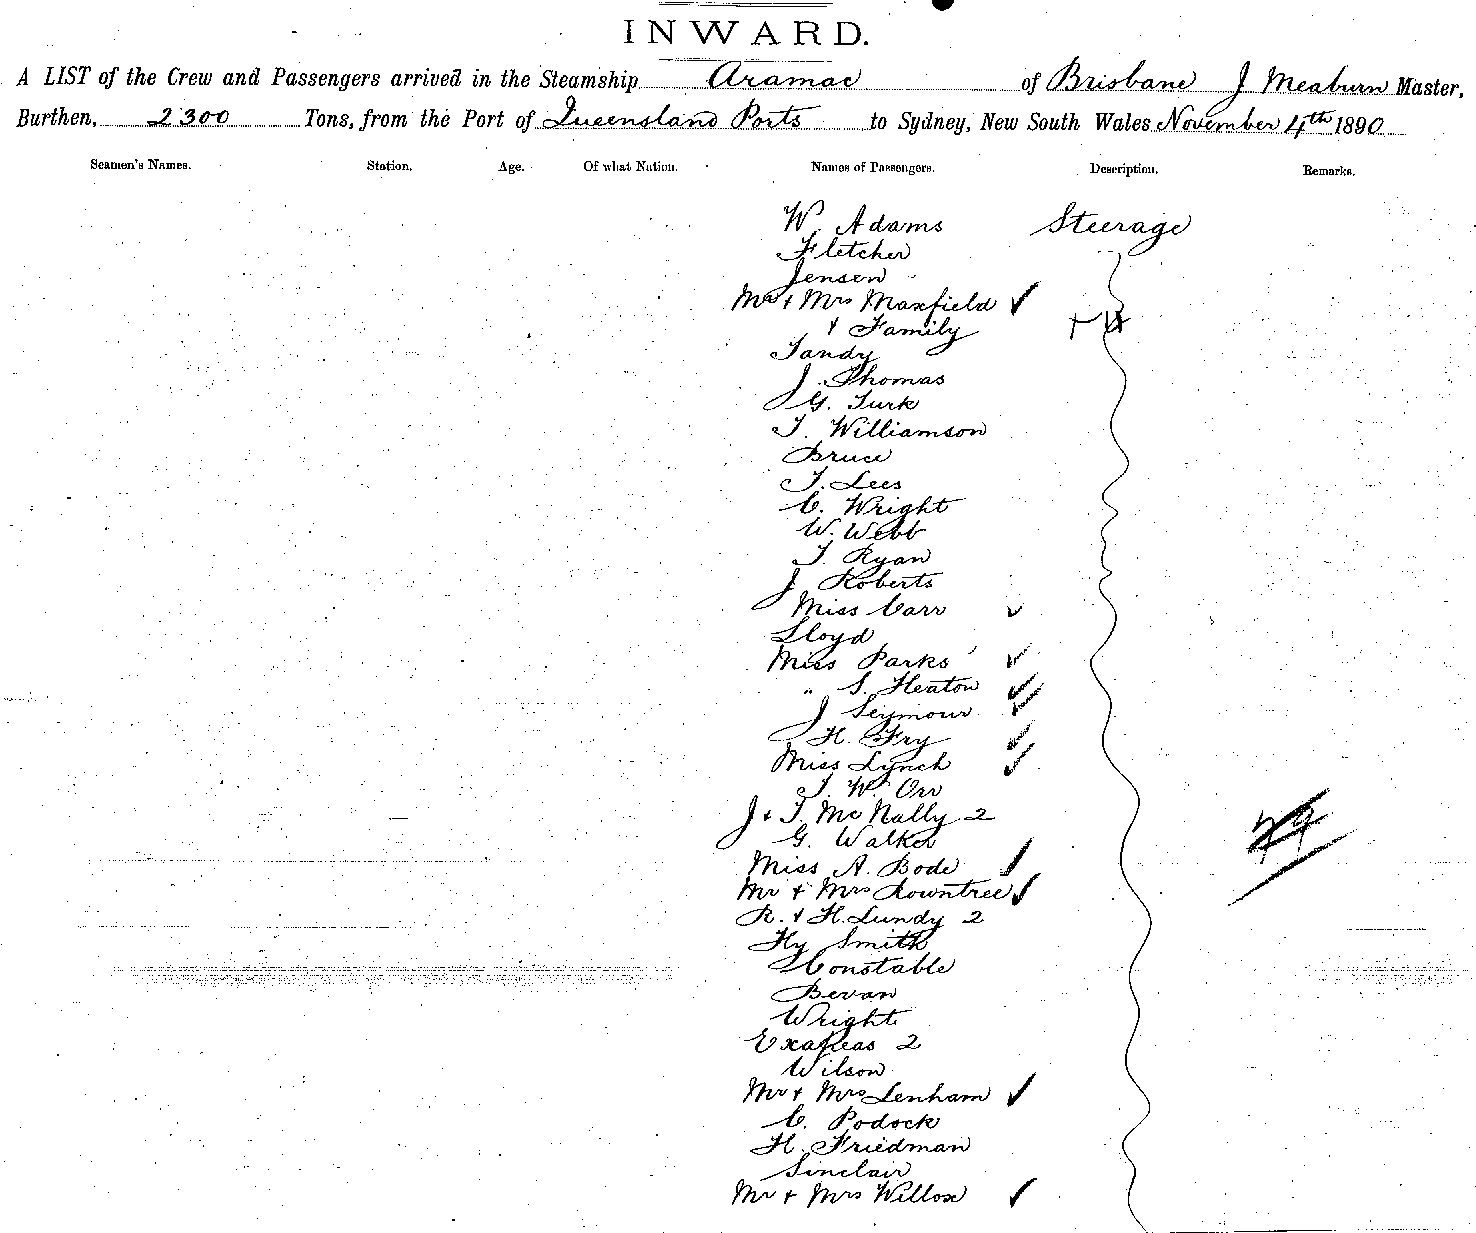 INWARD.
A LIST of the Crew and Passengers arrived in the Steamship Aramac of Brisbane J Meaburn Master,
Burthen, 2300 Tons, from the Port of Queensland Ports to Sydney, New South Wales November 4th 1890
Seamen's Names. Station. Age. Of what Nation. Names of Passengers. Description. Remarks.
W. Adams Steerage
Fletcher
Jensen
Mr + Mrs Maxfield ✓
+ Family
Tandy
J. Thomas
G. Turk
T. Williamson
Bruce
T. Lees
C. Wright
W. Webb
T. Ryan
J Roberts
Miss Carr ✓
Lloyd
Miss Parks ✓
" S. Heaton ✓
J Seymour ✓
H. Fry ✓
Miss Lynch ✓
T. W. Orr
J + T. McNally 2
G. Walker
Miss A. Bode ✓
Mr + Mrs Rowntree ✓
R. + H. Lundy 2
Hy Smith
Constable
Bevan
Wright
2
Wilson
Mr + Mrs Lenham ✓
C. Podock
H. Friedman
Sinclair
Mr + Mrs Willox ✓